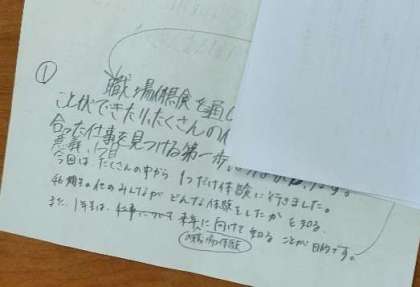 ①
職場体験を通し
上伏できたり、たくさんの
合った仕事を見つける第一歩
意義、目
今回は たくさんの中から 1つだけ体験に行きました。
の他のみんなが どんな体験をしたか を知る。
また、1年生は、仕事について 来年に向けて 知る ことが目的です。
職場体験